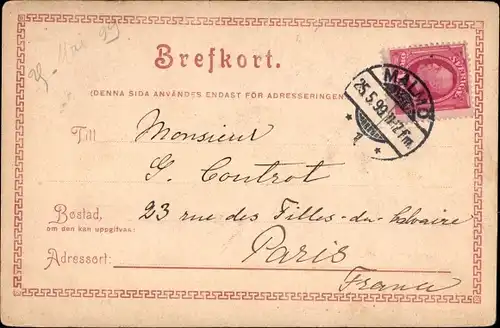 25 Mai 99
Brefkort.
(DENNA SIDA ANVÄNDES ENDAST FÖR ADRESSERINGEN
MALMÖ
25.5.99
1
Till Monsieur
G. Controt
Bostad, 23 rue des Filles-du-Calvaire
om den kan uppgifvas:
Adressort: Paris
France